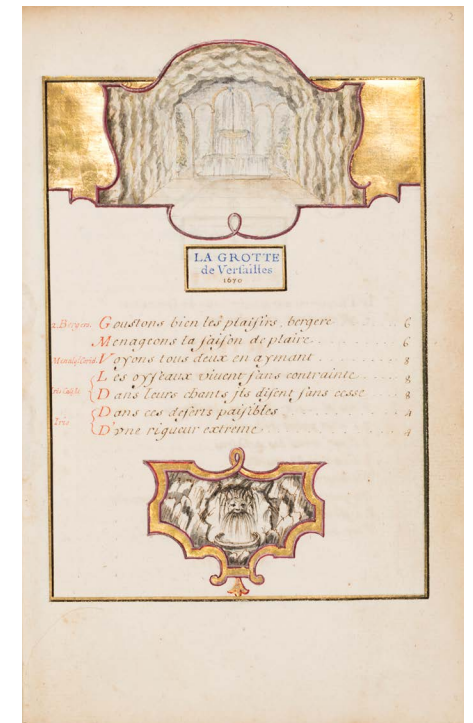 2
LA GROTTE
de Versailles
1670
2. Bergers. Goustons bien les plaisirs, bergere 6
Menageons la saison de plaire 6
Voyons tous deux en aymant 8
Les oyseaux vivent sans contrainte 8
Dans leurs chants jls disent sans cesse 8
Iris Dans ces deserts paisibles
D'vne rigueur extreme